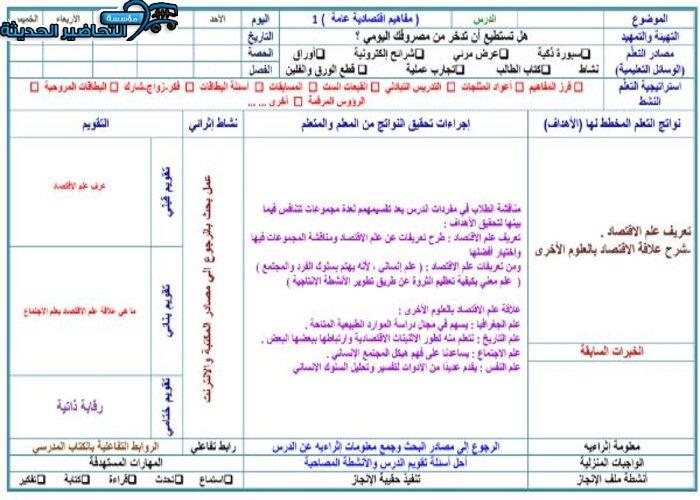 مؤسسة
التحاضير الحديثة
الموضوع الدرس ( مفاهيم اقتصادية عامة ) 1 اليوم الأحد الأربعاء الخميس
التهيئة والتمهيد هل تستطيع أن تدخر من مصروفك اليومي ؟ التاريخ
مصادر التعلم سبورة ذكية عرض مرئي شرائح إلكترونية أوراق الحصة
(الوسائل التعليمية) نشاط كتاب الطالب تجارب عملية قطع الورق والفلين الفصل
استراتيجية التعلم فرز المفاهيم أعواد المثلجات التدريس التبادلي القبعات الست المسابقات أسئلة البطاقات فكر-زاوج-شارك البطاقات المروحية
النشط الرؤوس المرقمة أخرى ... ...
نواتج التعلم المخطط لها (الأهداف) إجراءات تحقيق النواتج من المعلم والمتعلم نشاط إثرائي التقويم
تعريف علم الاقتصاد .
-شرح علاقة الاقتصاد بالعلوم الأخرى
الخبرات السابقة
مناقشة الطلاب في مفردات الدرس بعد تقسيمهم لعدة مجموعات تتنافس فيما
بينها لتحقيق الأهداف :
تعريف علم الاقتصاد : طرح تعريفات عن علم الاقتصاد ومناقشة المجموعات فيها
واختيار أفضلها
ومن تعريفات علم الاقتصاد : ( علم إنساني ، لأنه يهتم بسلوك الفرد والمجتمع )
( علم معني بكيفية تعظيم الثروة عن طريق تطوير الأنشطة الانتاجية )
علاقة علم الاقتصاد بالعلوم الأخرى :
علم الجغرافيا : يسهم في مجال دراسة الموارد الطبيعية المتاحة .
علم التاريخ : نتعلم منه تطور الاقتصادية وارتباطها ببعضها البعض .
علم الاجتماع : يساعدنا على فهم هيكل المجتمع الإنساني .
علم النفس : يقدم عديدًا من الادوات لتفسير وتحليل السلوك الإنساني
عمل بحث بالرجوع الى مصادر المكتبة والانترنت
تقويم قبلي
عرف علم الاقتصاد
تقويم بنائي
ما هي علاقة علم الاقتصاد بعلم الاجتماع
تقويم ختامي
رقابة ذاتية
معلومة إثرائية الرجوع إلى مصادر البحث وجمع معلومات إثرائية عن الدرس رابط تفاعلي الروابط التفاعلية بالكتاب المدرسي
الواجبات المنزلية أحل أسئلة تقويم الدرس والأنشطة المصاحبة المهارات المستهدفة
أنشطة ملف الإنجاز تنفيذ حقيبة الإنجاز استماع تحدث قراءة كتابة تفكير